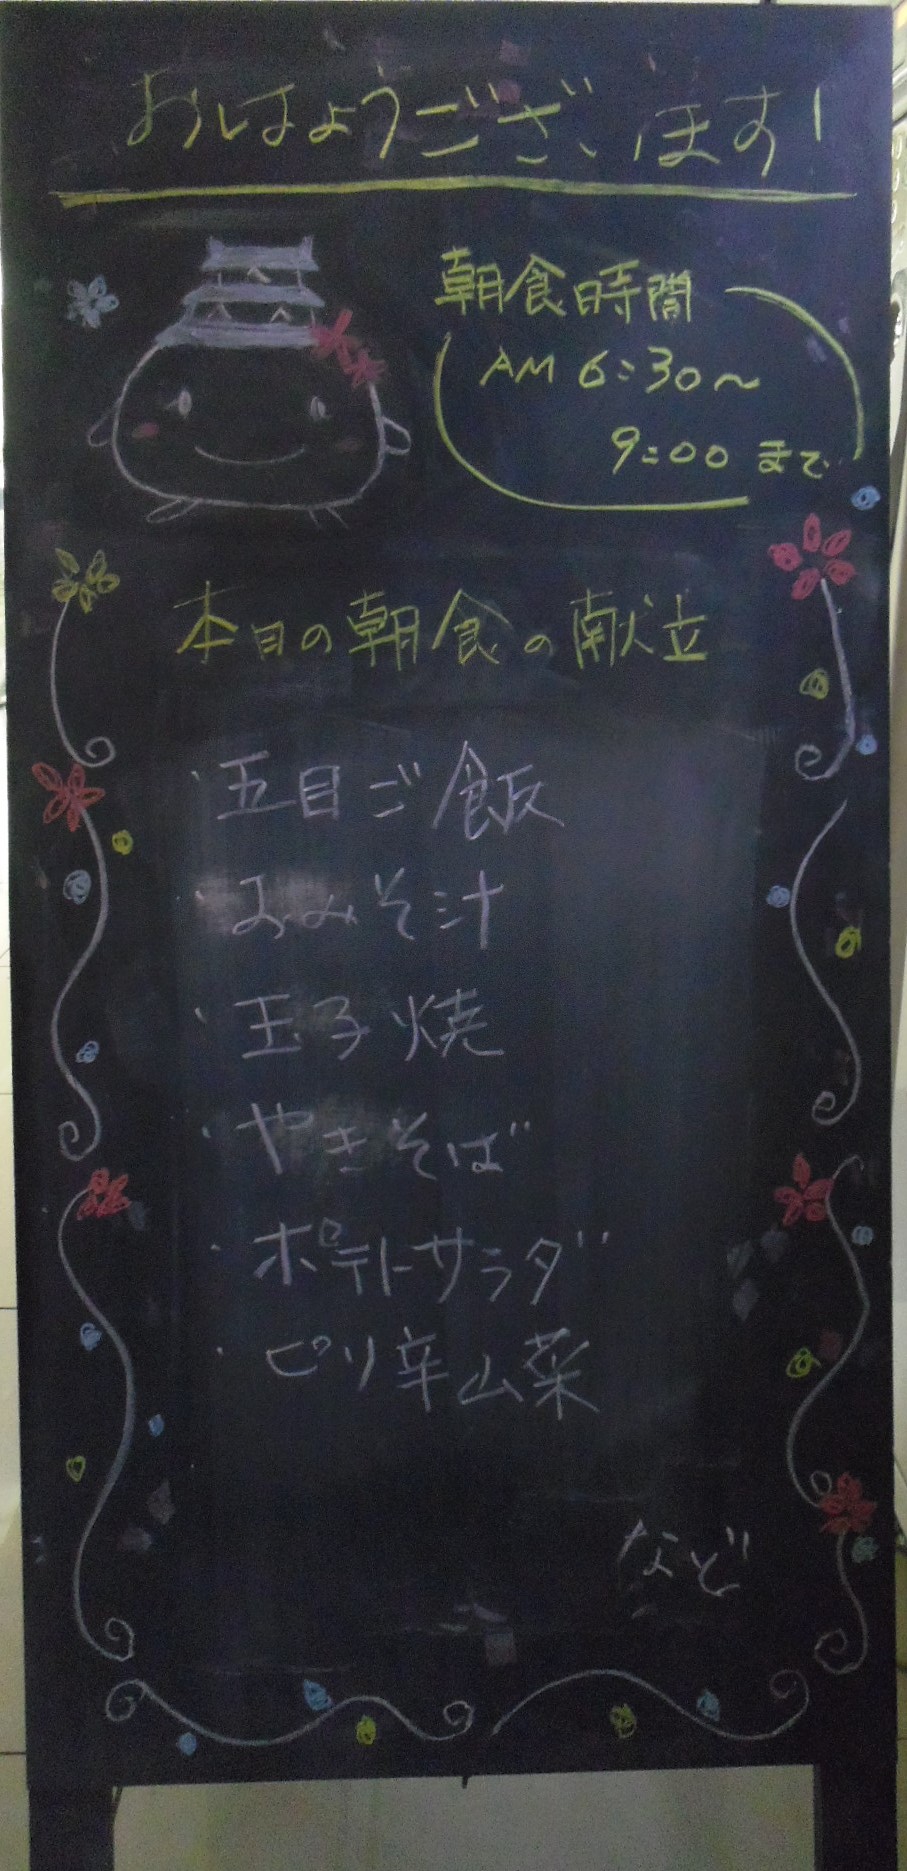 おはようございます!
朝食時間
AM 6:30〜
9:00 まで
本日の朝食の献立
・五目ご飯
・おみそ汁
・玉子焼
・やきそば
・ポテトサラダ
・ピリ辛山菜
など